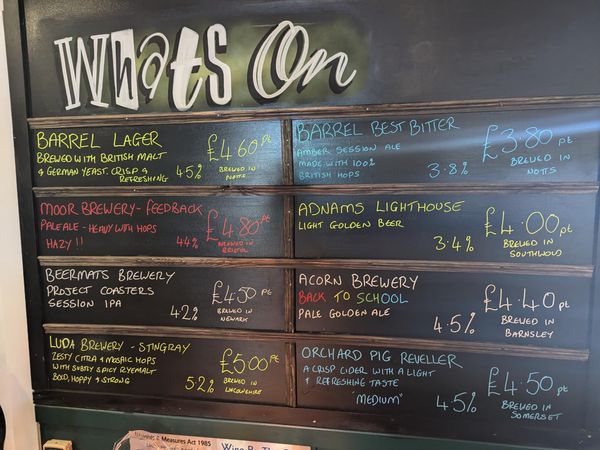 Whats On
BARREL LAGER
BREWED WITH BRITISH MALT
& GERMAN YEAST. CRISP &
REFRESHING
4.5%
£4.60 pt
BREWED IN
NOTTS
BARREL BEST BITTER
AMBER SESSION ALE
MADE WITH 100%
BRITISH HOPS
3.8%
£3.80 pt
BREWED IN
NOTTS
MOOR BREWERY - FEEDBACK
PALE ALE - HEAVY WITH HOPS
HAZY !!
4.4%
£4.80 pt
BREWED IN
BRISTOL
ADNAMS LIGHTHOUSE
LIGHT GOLDEN BEER
3.4%
£4.00 pt
BREWED IN
SOUTHWOLD
BEERMATS BREWERY
PROJECT COASTERS
SESSION IPA
4.2%
£4.50 pt
BREWED IN
NEWARK
ACORN BREWERY
BACK TO SCHOOL
PALE GOLDEN ALE
4.5%
£4.40 pt
BREWED IN
BARNSLEY
LUDA BREWERY - STINGRAY
ZESTY CITRA & MOSAIC HOPS
WITH SUBTLY SPICY RYEMALT
BOLD, HOPPY & STRONG
5.2%
£5.00 pt
BREWED IN
LINCOLNSHIRE
ORCHARD PIG REVELLER
A CRISP CIDER WITH A LIGHT
& REFRESHING TASTE
"MEDIUM"
4.5%
£4.50 pt
BREWED IN
SOMERSET
& Measures Act 1985